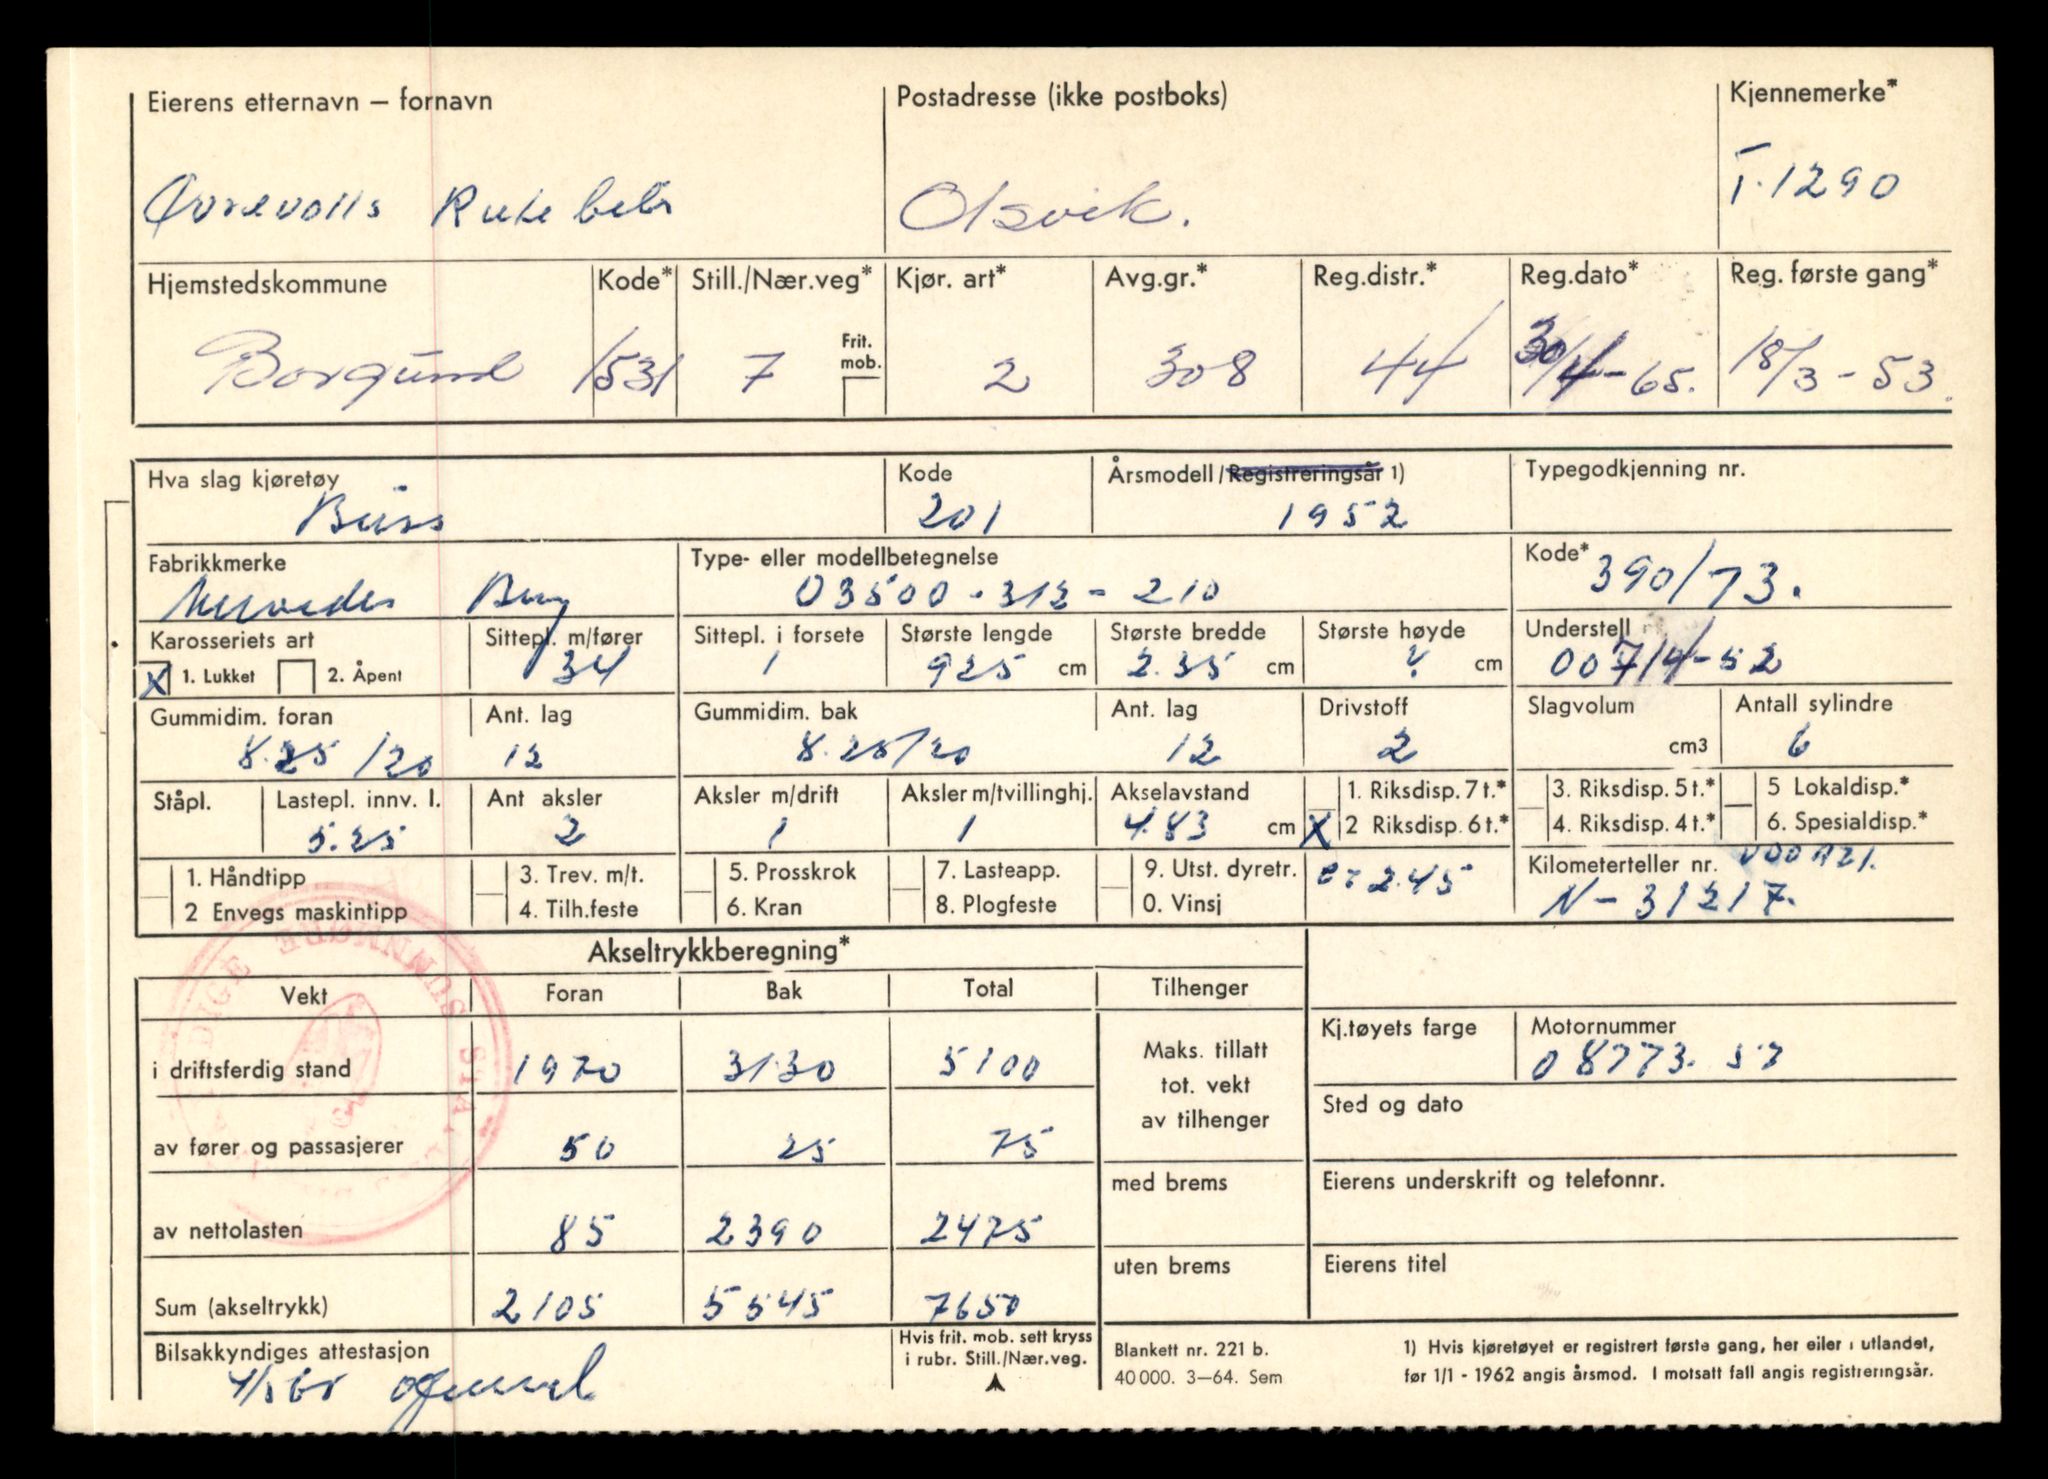 Eierens etternavn – fornavn Postadresse (ikke postboks) Kjennemerke*
Øvrevolls Rutebilr Olsvik. T-1290
Hjemstedskommune Kode* Still./Nær.veg* Kjør. art* Avg.gr.* Reg.distr.* Reg.dato* Reg. første gang*
Frit. mob.
Borgund 1531 7 2 308 44 30/4-65. 18/3-53.
Hva slag kjøretøy Kode Årsmodell/Registreringsår 1) Typegodkjenning nr.
Buss 201 1952
Fabrikkmerke Type- eller modellbetegnelse Kode*
Mercedes Benz O3500-312-210 390/73.
Karosseriets art Sittepl. m/fører Sittepl. i forsete Største lengde Største bredde Største høyde Understell
X 1. Lukket 2. Åpent 34 1 925 cm 2.35 cm ? cm 00714-52
Gummidim. foran Ant. lag Gummidim. bak Ant. lag Drivstoff Slagvolum Antall sylindre
8.25/20 12 8.25/20 12 2 cm3 6
Ståpl. Lastepl. innv. l. Ant aksler Aksler m/drift Aksler m/tvillinghj. Akselavstand 1. Riksdisp. 7 t.* 3. Riksdisp. 5 t.* 5 Lokaldisp.*
5.25 2 1 1 4.83 cm X 2 Riksdisp. 6 t.* 4. Riksdisp. 4 t.* 6. Spesialdisp.*
1. Håndtipp 3. Trev. m/t. 5. Prosskrok 7. Lasteapp. 9. Utst. dyretr. 2.45 Kilometerteller nr.
2 Envegs maskintipp 4. Tilh.feste 6. Kran 8. Plogfeste 0. Vinsj N-31217.
Akseltrykkberegning*
Vekt Foran Bak Total Tilhenger
Kj.tøyets farge Motornummer
i driftsferdig stand 1970 3130 5100 Maks. tillatt 08773.53
tot. vekt
av tilhenger
Sted og dato
av fører og passasjerer 50 25 75
med brems Eierens underskrift og telefonnr.
av nettolasten 85 2390 2475
uten brems Eierens titel
Sum (akseltrykk) 2105 5545 7650
Bilsakkyndiges attestasjon Hvis frit. mob. sett kryss i rubr. Still./Nær.veg.
Blankett nr. 221 b.
40 000. 3–64. Sem
1) Hvis kjøretøyet er registrert første gang, her eller i utlandet,
før 1/1 - 1962 angis årsmod. I motsatt fall angis registreringsår.